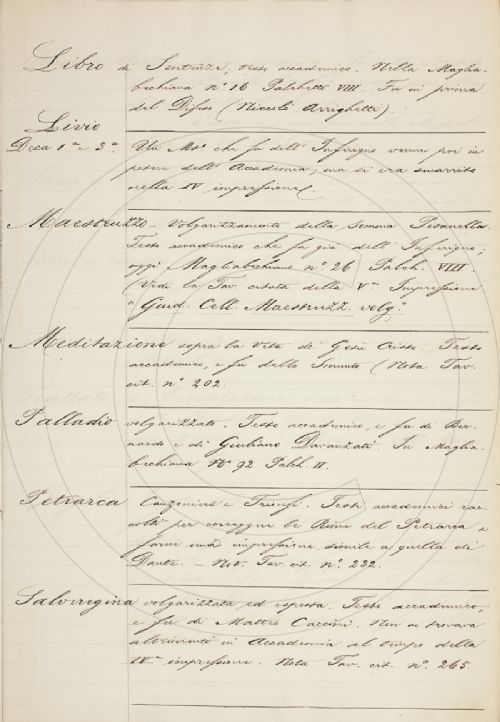 Libro di Sentenze; testo accademico. Nella Maglia-
bechiana nº 16 Palchetto VIII. Fu in prima
del Difeso (Niccolò Arrighetti).
Livio
Deca 1ª - 3ª Un Msº che fu dell' Inferigno venne poi in
potere dell' Accademia; ma si era smarrito
nella IV impressione.
Maestruzzo - Volgarizzamento della Somma Pisanella.
Testo accademico che fu già dell' Inferigno;
oggi Magliabechiano nº 26 Palch. VIII.
(Vedi la Tav. citata della Vª Impressione
"Guid. Cell. Maestruzz. volg."
Meditazione sopra la Vita di Gesù Cristo. Testo
accademico, e fu dello Smunto (Nota Tav.
cit. nº 202.
Palladio volgarizzato. Testo accademico, e fu di Ber-
nardo e di Giuliano Davanzati. In Maglia-
bechiana Nº 92 Palch. II.
Petrarca Canzoniere e Trionfi. Testi accademici rac-
colti per correggere le Rime del Petrarca e
farne una impressione simile a quella di
Dante. - Not. Tav. cit. nº 232.
Salveregina volgarizzata ed esposta. Testo accademico,
e fu di Matteo Caccini. Non si trovava
altrimenti in Accademia al tempo della
IVª impressione. Nota Tav. cit. nº. 265.